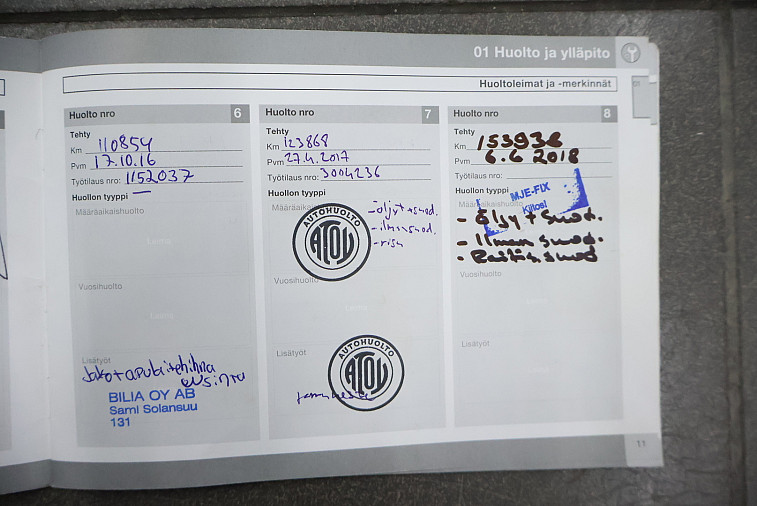 01 Huolto ja ylläpito
Huoltoleimat ja -merkinnät
01
Huolto nro 6
Tehty
Km 110854
Pvm 17.10.16
Työtilaus nro: 1152037
Huollon tyyppi
Määräaikaishuolto
Vuosihuolto
Lisätyöt
Jako + apulaitehihna
uusinta
BILIA OY AB
Sami Solansuu
131
Huolto nro 7
Tehty
Km 123868
Pvm 27.4.2017
Työtilaus nro: 3004236
Huollon tyyppi
Määräaikaishuolto
- öljyt + suod.
- ilmansuod.
AUTOHUOLTO
ATOY
Vuosihuolto
Lisätyöt
AUTOHUOLTO
ATOY
jarruneste
Huolto nro 8
Tehty
Km 153938
Pvm 6.6 2018
Työtilaus nro:
Huollon tyyppi
Määräaikaishuolto
MJE-FIX
Kiitos!
- Öljy + suod.
- Ilman suod.
- Raitisn suod
Vuosihuolto
Lisätyöt
11